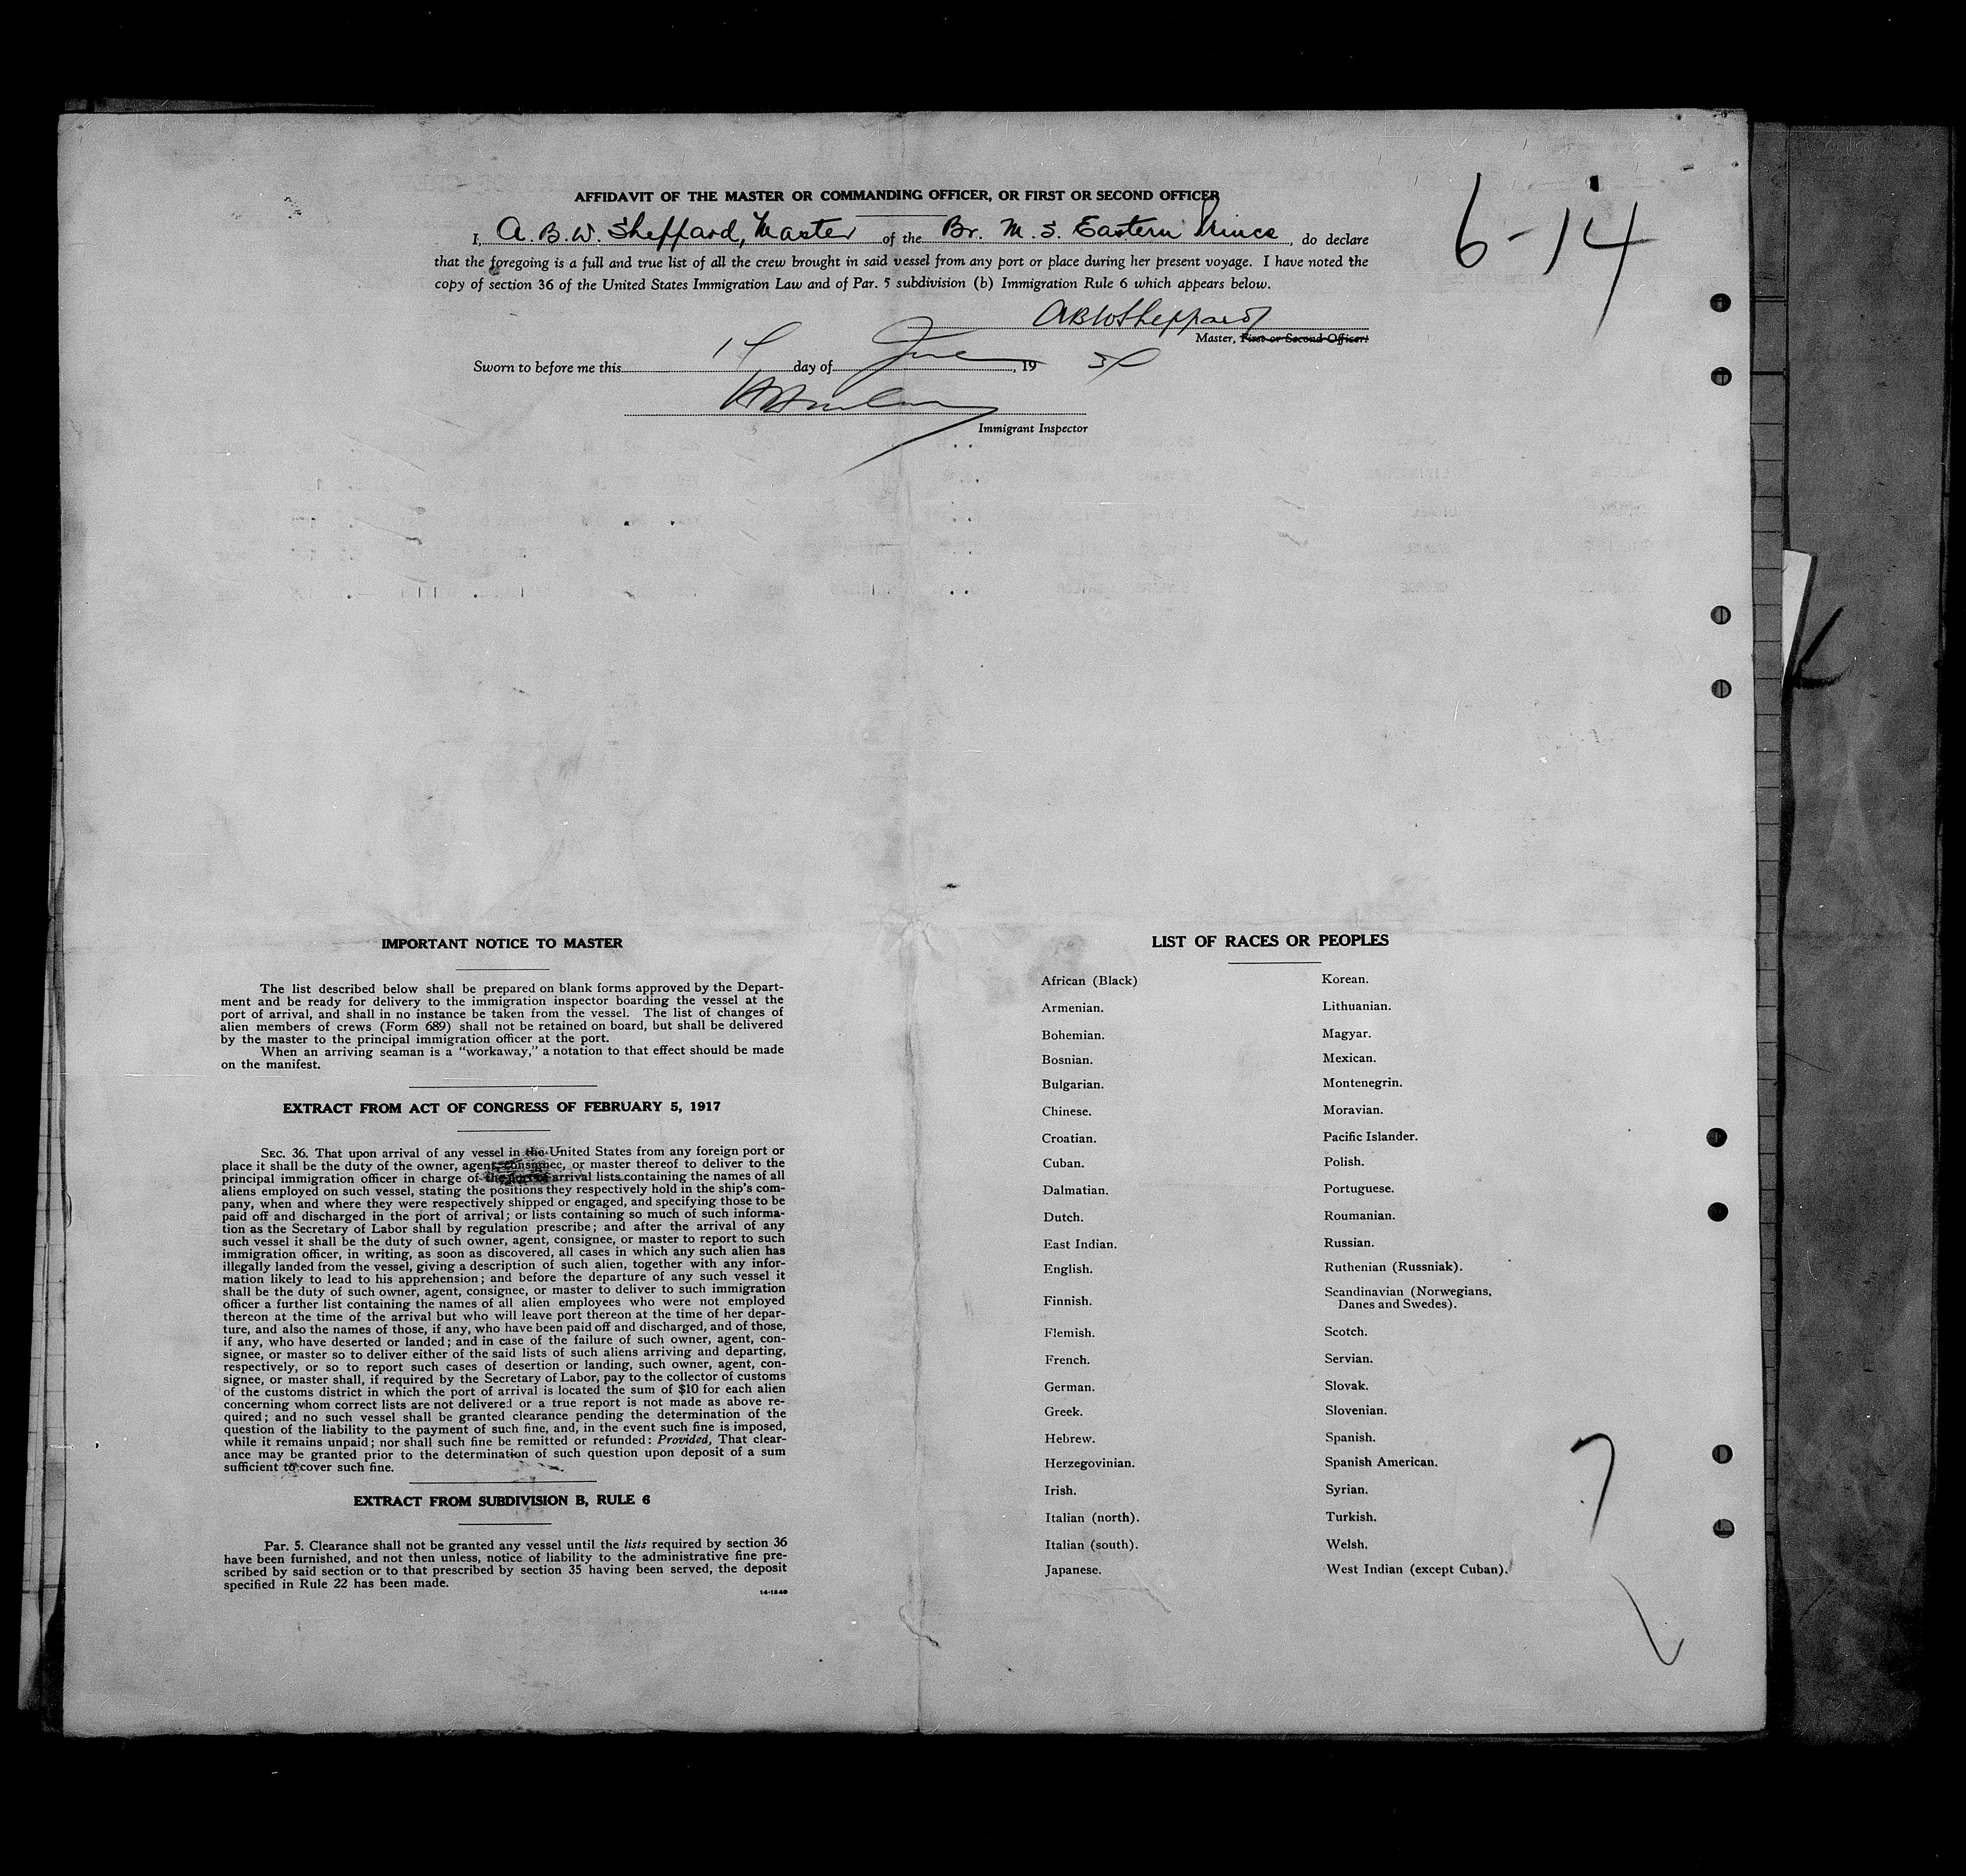 AFFIDAVIT OF THE MASTER OR COMMANDING OFFICER, OR FIRST OR SECOND OFFICER
6-14
I, A. B. W. Sheppard, Master of the Br. M. S. Eastern Prince, do declare
that the foregoing is a full and true list of all the crew brought in said vessel from any port or place during her present voyage. I have noted the
copy of section 36 of the United States Immigration Law and of Par. 5 subdivision (b) Immigration Rule 6 which appears below.
ABWSheppard
Master, First or Second Officer.
Sworn to before me this 14 day of June, 19
Immigrant Inspector
IMPORTANT NOTICE TO MASTER
The list described below shall be prepared on blank forms approved by the Depart-
ment and be ready for delivery to the immigration inspector boarding the vessel at the
port of arrival, and shall in no instance be taken from the vessel. The list of changes of
alien members of crews (Form 689) shall not be retained on board, but shall be delivered
by the master to the principal immigration officer at the port.
When an arriving seaman is a "workaway," a notation to that effect should be made
on the manifest.
EXTRACT FROM ACT OF CONGRESS OF FEBRUARY 5, 1917
SEC. 36. That upon arrival of any vessel in the United States from any foreign port or
place it shall be the duty of the owner, agent, consignee, or master thereof to deliver to the
principal immigration officer in charge of the port of arrival lists containing the names of all
aliens employed on such vessel, stating the positions they respectively hold in the ship's com-
pany, when and where they were respectively shipped or engaged, and specifying those to be
paid off and discharged in the port of arrival; or lists containing so much of such informa-
tion as the Secretary of Labor shall by regulation prescribe; and after the arrival of any
such vessel it shall be the duty of such owner, agent, consignee, or master to report to such
immigration officer, in writing, as soon as discovered, all cases in which any such alien has
illegally landed from the vessel, giving a description of such alien, together with any infor-
mation likely to lead to his apprehension; and before the departure of any such vessel it
shall be the duty of such owner, agent, consignee, or master to deliver to such immigration
officer a further list containing the names of all alien employees who were not employed
thereon at the time of the arrival but who will leave port thereon at the time of her depar-
ture, and also the names of those, if any, who have been paid off and discharged, and of those,
if any, who have deserted or landed; and in case of the failure of such owner, agent, con-
signee, or master so to deliver either of the said lists of such aliens arriving and departing,
respectively, or so to report such cases of desertion or landing, such owner, agent, con-
signee, or master shall, if required by the Secretary of Labor, pay to the collector of customs
of the customs district in which the port of arrival is located the sum of $10 for each alien
concerning whom correct lists are not delivered or a true report is not made as above re-
quired; and no such vessel shall be granted clearance pending the determination of the
question of the liability to the payment of such fine, and, in the event such fine is imposed,
while it remains unpaid; nor shall such fine be remitted or refunded: Provided, That clear-
ance may be granted prior to the determination of such question upon deposit of a sum
sufficient to cover such fine.
EXTRACT FROM SUBDIVISION B, RULE 6
Par. 5. Clearance shall not be granted any vessel until the lists required by section 36
have been furnished, and not then unless, notice of liability to the administrative fine pre-
scribed by said section or to that prescribed by section 35 having been served, the deposit
specified in Rule 22 has been made.
14-1240
LIST OF RACES OR PEOPLES
African (Black)
Armenian.
Bohemian.
Bosnian.
Bulgarian.
Chinese.
Croatian.
Cuban.
Dalmatian.
Dutch.
East Indian.
English.
Finnish.
Flemish.
French.
German.
Greek.
Hebrew.
Herzegovinian.
Irish.
Italian (north).
Italian (south).
Japanese.
Korean.
Lithuanian.
Magyar.
Mexican.
Montenegrin.
Moravian.
Pacific Islander.
Polish.
Portuguese.
Roumanian.
Russian.
Ruthenian (Russniak).
Scandinavian (Norwegians,
Danes and Swedes).
Scotch.
Servian.
Slovak.
Slovenian.
Spanish.
Spanish American.
Syrian.
Turkish.
Welsh.
West Indian (except Cuban).
7